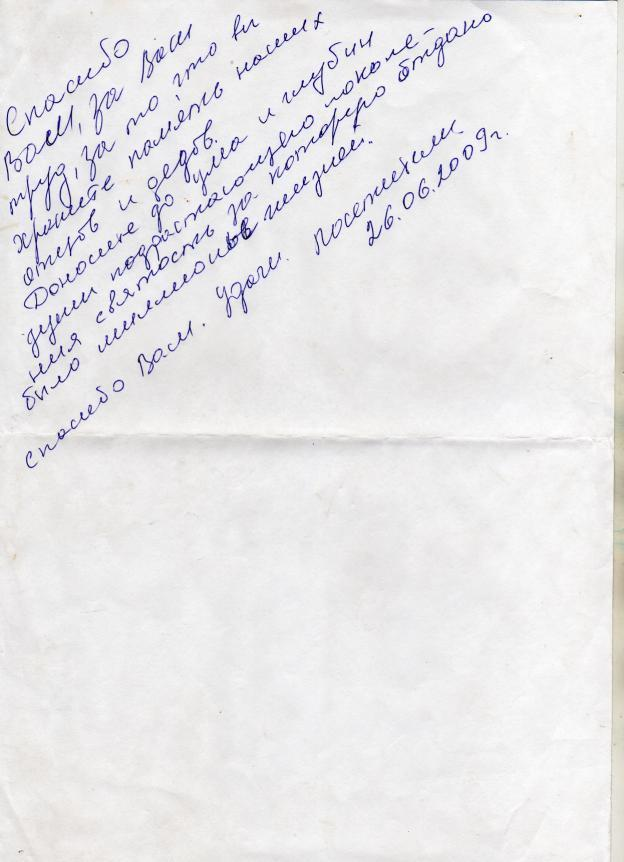 Спасибо
Вам, за Ваш
труд, за то что вы
храните память наших
отцов и дедов.
Доносите до ума и глубин
души подрастающего поколе-
ния святость за которую отдано
было миллионы жизней.
Спасибо Вам. Удачи. Посетители
26.06.2009г.